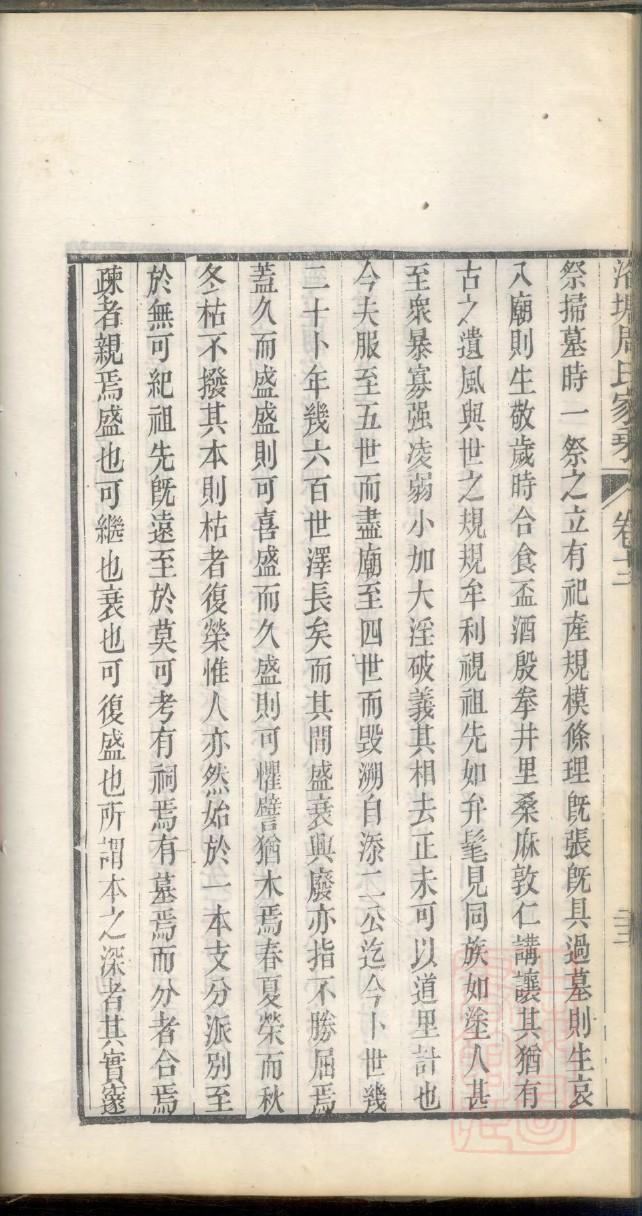 洛塘周氏家乘 卷十二
祭掃墓時一祭之立有祀產規模條理旣張旣具過墓則生哀
入廟則生敬歲時合食盃酒殷拳井里桑麻敦仁講讓其猶有
古之遺風與世之規規牟利視祖先如弁髦見同族如塗人甚
至衆暴寡强凌弱小加大淫破義其相去正未可以道里計也
今夫服至五世而盡廟至四世而毀溯自添二公迄今卜世幾
二十卜年幾六百世澤長矣而其間盛衰興廢亦指不勝屈焉
蓋久而盛盛則可喜盛而久盛則可懼譬猶木焉春夏榮而秋
冬枯不撥其本則枯者復榮惟人亦然始於一本支分派別至
於無可紀祖先旣遠至於莫可考有祠焉有墓焉而分者合焉
疎者親焉盛也可繼也衰也可復盛也所謂本之深者其實邃